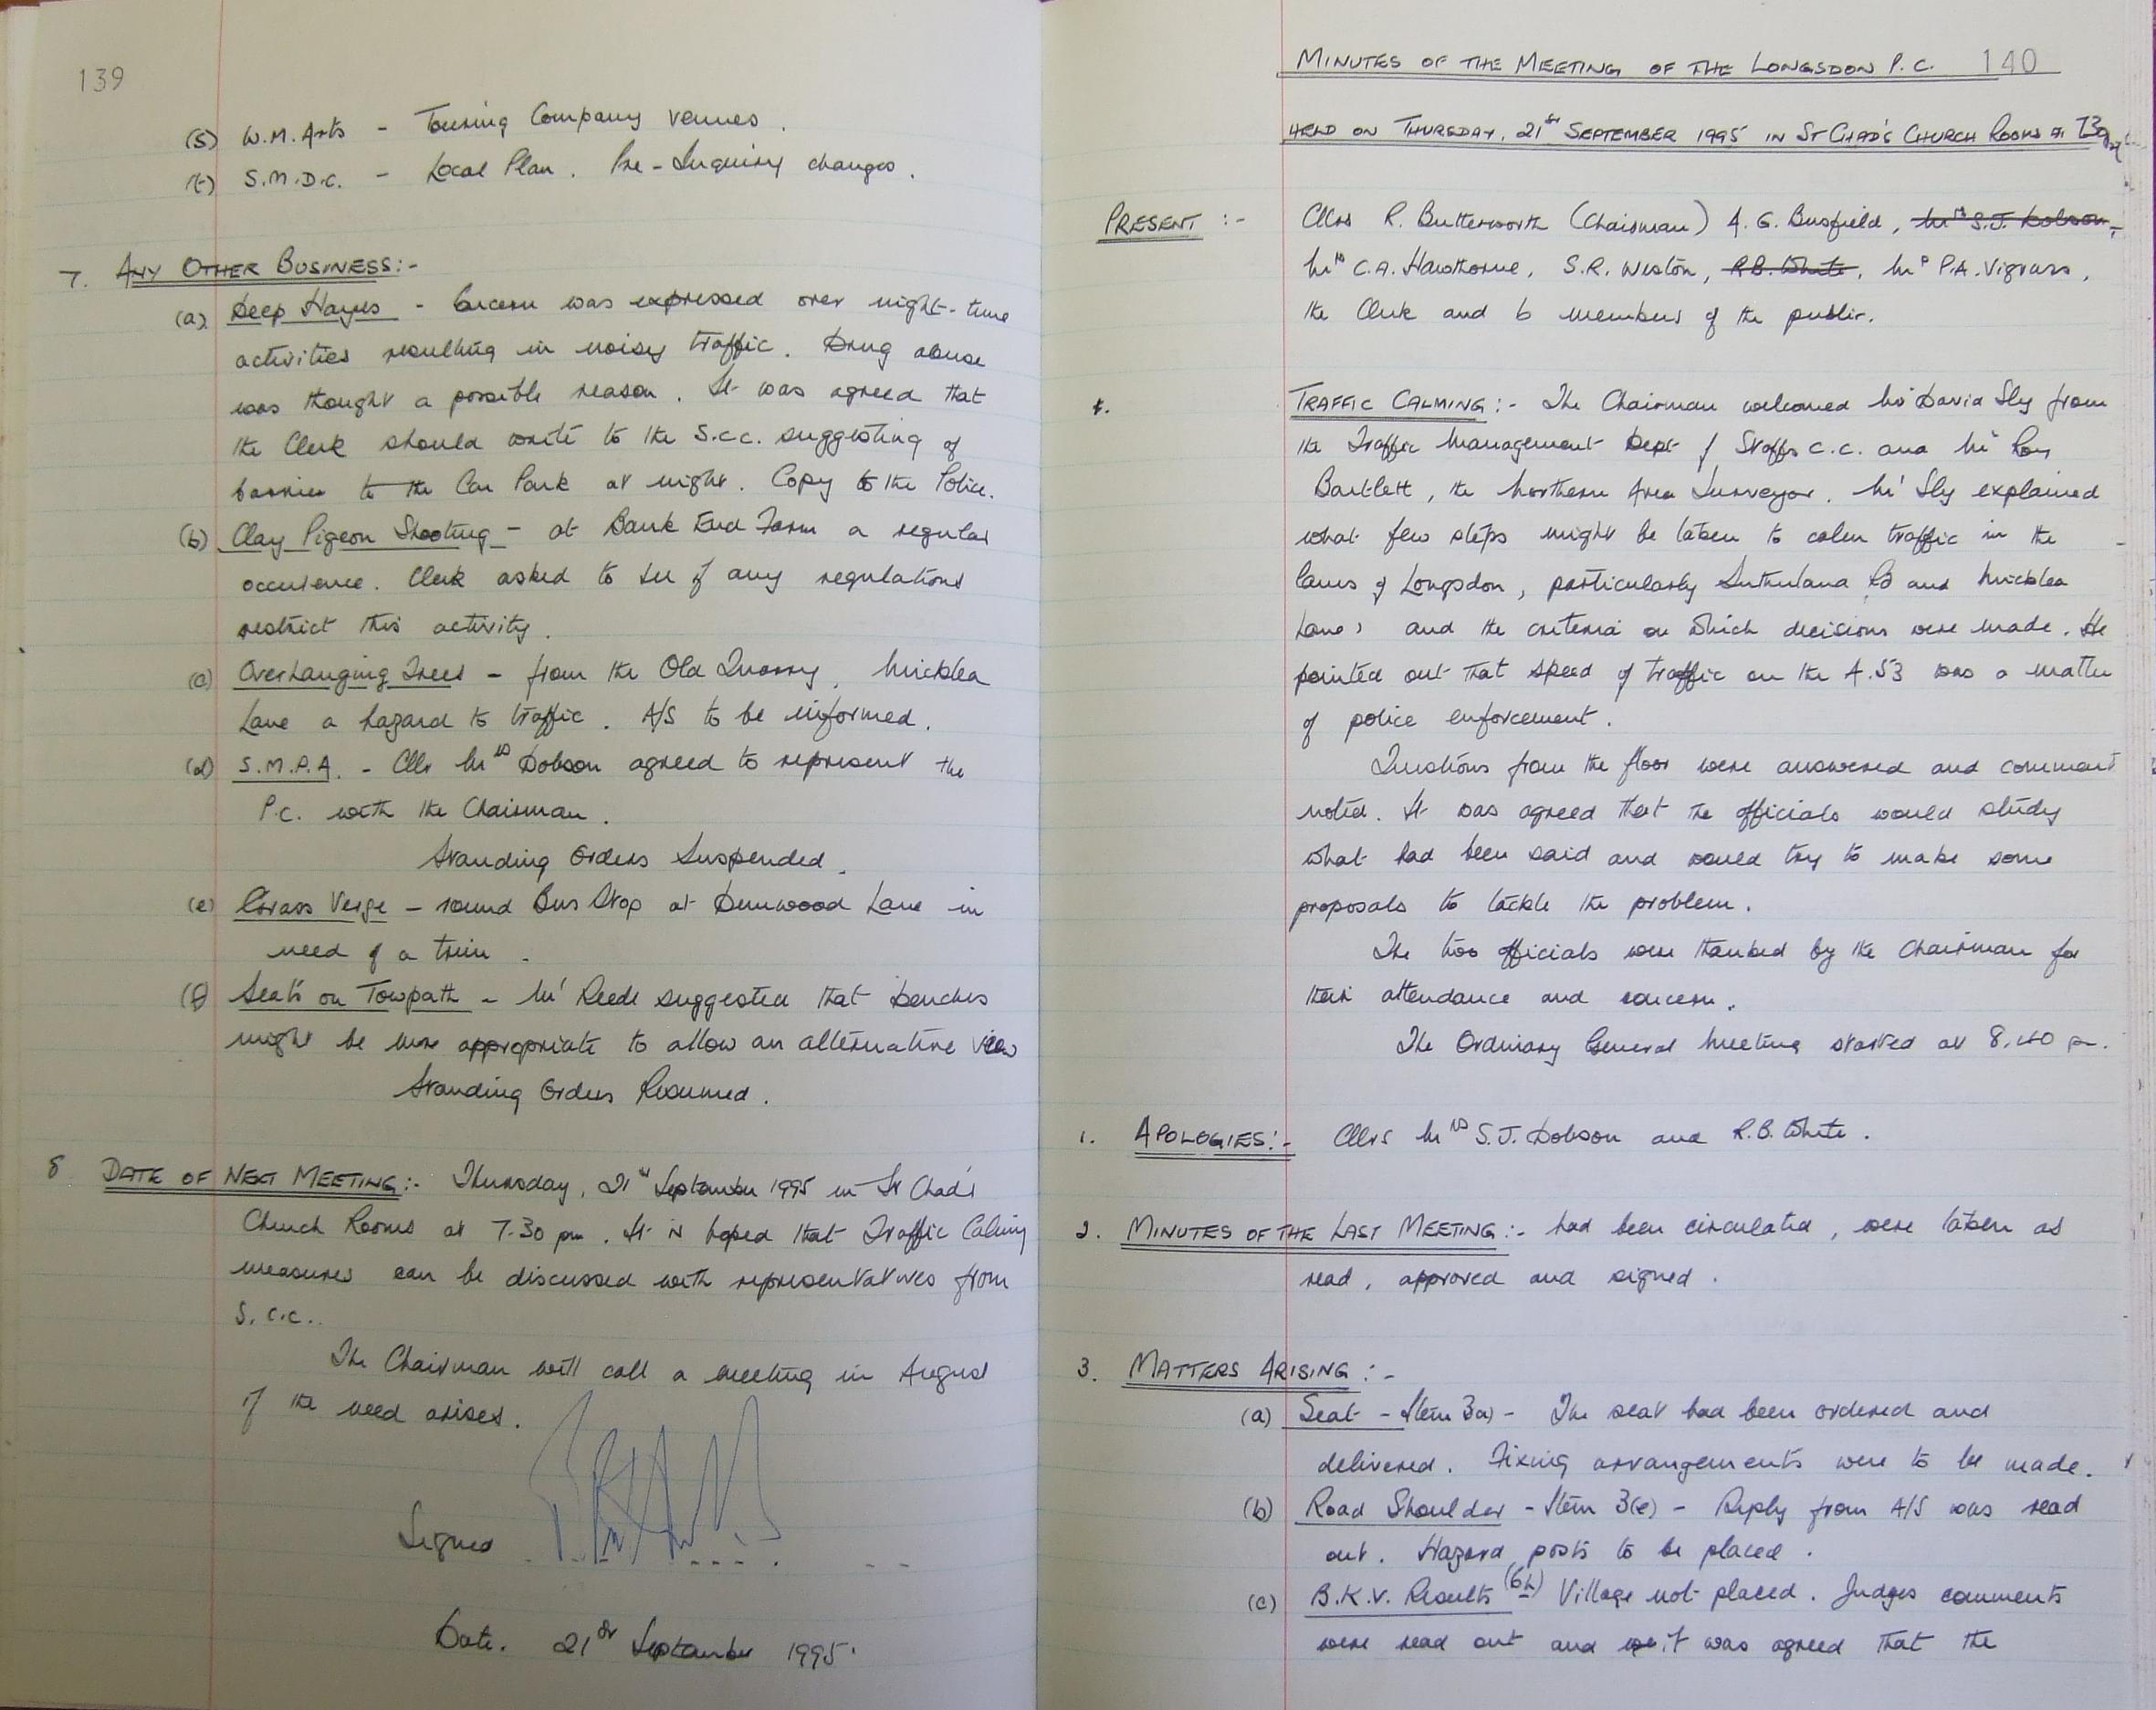 139
(s) W.M. Arts - Touring Company venues.
(t) S.M.D.C. - Local Plan. Pre-Inquiry changes.
7. ANY OTHER BUSINESS:-
(a) Deep Hayes - Concern was expressed over night-time
activities resulting in noisy traffic. Drug abuse
was thought a possible reason. It was agreed that
the Clerk should write to the S.C.C. suggesting of
barrier to the Car Park at night. Copy to the Police.
(b) Clay Pigeon Shooting - at Bank End Farm a regular
occurence. Clerk asked to see if any regulations
restrict this activity.
(c) Overhanging Trees - from the Old Quarry, Micklea
Lane a hazard to traffic. A/S to be informed.
(d) S.M.P.A. - Cllr Mrs Dobson agreed to represent the
P.C. with the Chairman.
Standing Orders Suspended.
(e) Grass Verge - round Bus Stop at Denwood Lane in
need of a trim.
(f) Seats on Towpath - Mr Reede suggested that benches
might be more appropriate to allow an alternative view
Standing Orders Resumed.
8 DATE OF NEXT MEETING:- Thursday, 21st September 1995 in St Chad's
Church Rooms at 7.30 pm. It is hoped that Traffic Calming
measures can be discussed with representatives from
S.C.C..
The Chairman will call a meeting in August
if the need arises.
Signed
Date. 21st September 1995.
MINUTES OF THE MEETING OF THE LONGSDON P.C. 140
HELD ON THURSDAY, 21st SEPTEMBER 1995 IN ST CHAD'S CHURCH ROOMS AT
PRESENT :- Cllrs R. Butterworth (Chairman) A.G. Busfield, Mrs S.J. Dobson,
Mrs C.A. Hawthorne, S.R. Weston, R.B. White, Mrs P.A. Vigrass,
the Clerk and 6 members of the public.
TRAFFIC CALMING:- The Chairman welcomed Mr David Sly from
the Traffic Management Dept of Staffs C.C. and Mr Roy
Bartlett, the Northern Area Surveyor. Mr Sly explained
what few steps might be taken to calm traffic in the
lanes of Longsdon, particularly Sutherland Rd and Micklea
Lane, and the criteria on which decisions were made. He
pointed out that speed of traffic on the A.53 was a matter
of police enforcement.
Questions from the floor were answered and comment
noted. It was agreed that the officials would study
what had been said and would try to make some
proposals to tackle the problem.
The two officials were thanked by the Chairman for
their attendance and concern.
The Ordinary General Meeting started at 8.40 pm.
1. APOLOGIES:- Cllrs Mrs S.J. Dobson and R.B. White.
2. MINUTES OF THE LAST MEETING:- had been circulated, were taken as
read, approved and signed.
3. MATTERS ARISING:-
(a) Seat - Item 3a) - The seat had been ordered and
delivered. Fixing arrangements were to be made.
(b) Road Shoulder - Item 3(e) - Reply from A/S was read
out. Hazard posts to be placed.
(c) B.K.V. Results (6h) - Village not placed. Judges comments
were read out and it was agreed that the